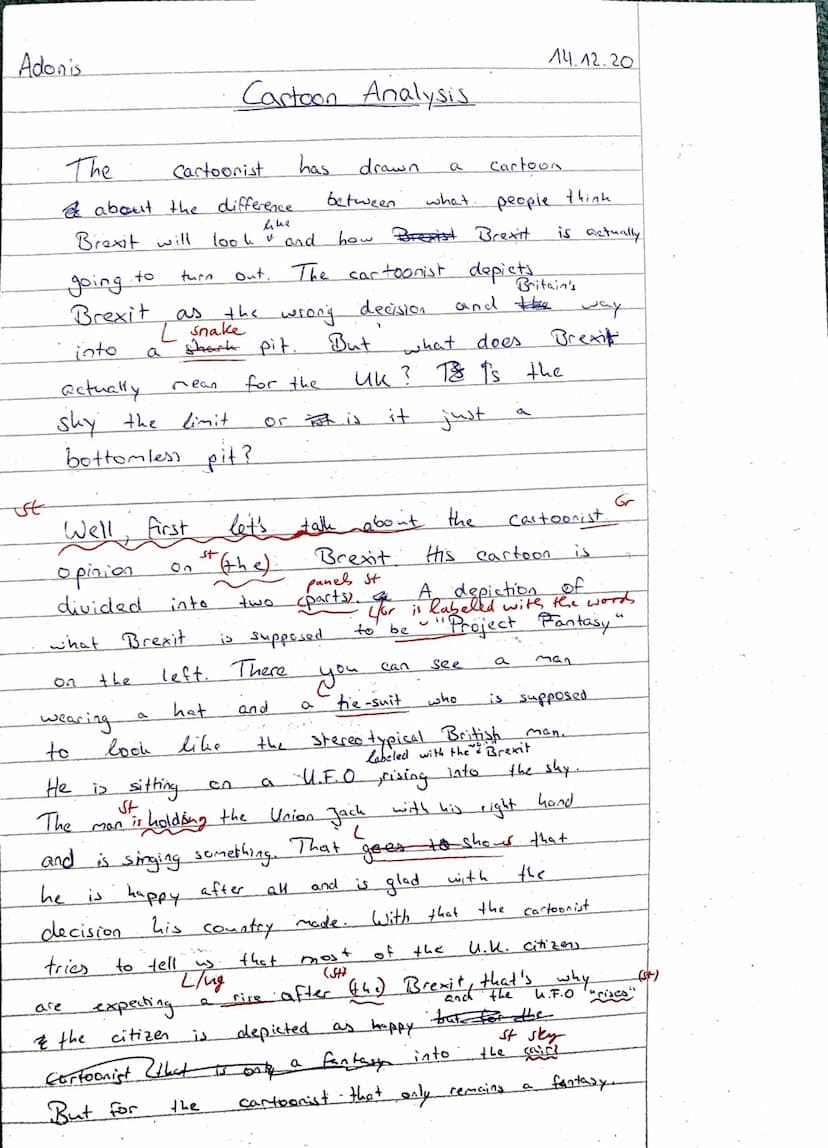 Adonis 14.12.20
Cartoon Analysis
The cartoonist has drawn a cartoon
about the difference between what people think
like
Brexit will look and how Brexist Brexit is actually
going to turn out. The cartoonist depicts
Britain's
Brexit as the wrong decision and the way
L snake
into a shark pit. But what does Brexit
actually mean for the UK? Is the
sky the limit or is it just a
bottomless pit?
st Gr
Well, first let's talk about the cartoonist
st
opinion on (the) Brexit. His cartoon is
panels st
divided into two (parts). A depiction of
L/Gr is labeled with the words
what Brexit is supposed to be "Project Fantasy"
on the left. There you can see a man
L
wearing a hat and a tie-suit who is supposed
to look like the stereotypical British man.
labeled with the "Brexit
He is sitting on a U.F.O rising into the sky.
st
The man is holding the Union Jack with his right hand
L
and is singing something. That goes to shows that
he is happy after all and is glad with the
decision his country made. With that the cartoonist
tries to tell us that most of the U.K. citizens
L/ug (st) (st)
are expecting a rise after (the) Brexit, that's why
and the U.F.O "rises"
the citizen is depicted as happy but for the
st sky
cartoonist that is only a fantasy into the
But for the cartoonist that only remains a fantasy.